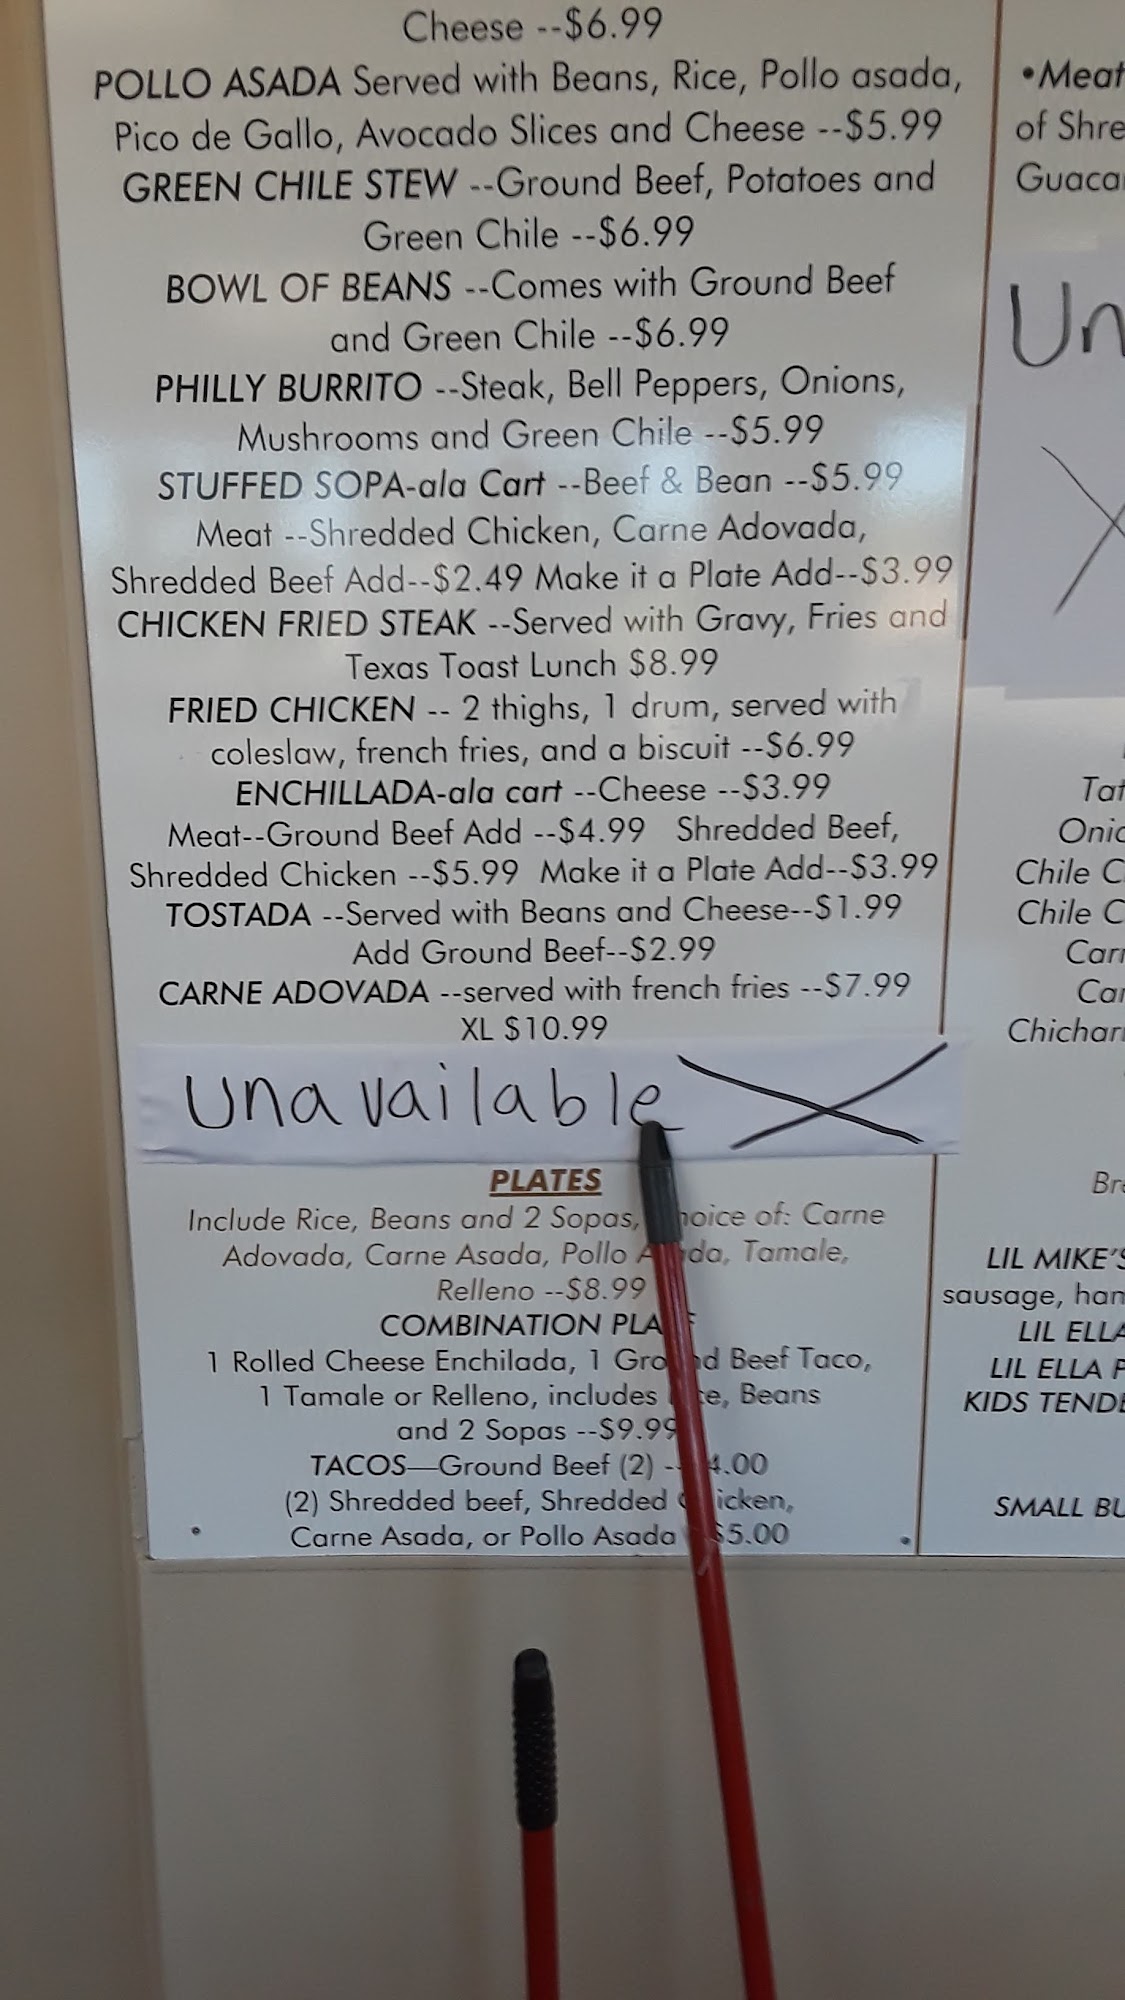 Cheese --$6.99
POLLO ASADA Served with Beans, Rice, Pollo asada,
Pico de Gallo, Avocado Slices and Cheese --$5.99
GREEN CHILE STEW --Ground Beef, Potatoes and
Green Chile --$6.99
BOWL OF BEANS --Comes with Ground Beef
and Green Chile --$6.99
PHILLY BURRITO --Steak, Bell Peppers, Onions,
Mushrooms and Green Chile --$5.99
STUFFED SOPA-ala Cart --Beef & Bean --$5.99
Meat --Shredded Chicken, Carne Adovada,
Shredded Beef Add--$2.49 Make it a Plate Add--$3.99
CHICKEN FRIED STEAK --Served with Gravy, Fries and
Texas Toast Lunch $8.99
FRIED CHICKEN -- 2 thighs, 1 drum, served with
coleslaw, french fries, and a biscuit --$6.99
ENCHILLADA-ala cart --Cheese --$3.99
Meat--Ground Beef Add --$4.99 Shredded Beef,
Shredded Chicken --$5.99 Make it a Plate Add--$3.99
TOSTADA --Served with Beans and Cheese--$1.99
Add Ground Beef--$2.99
CARNE ADOVADA --served with french fries --$7.99
XL $10.99
Unavailable
PLATES
Include Rice, Beans and 2 Sopas, of: Carne
Adovada, Carne Asada, Pollo Tamale,
Relleno --$8.99
COMBINATION
1 Rolled Cheese Enchilada, 1 Beef Taco,
1 Tamale or Relleno, includes Beans
and 2 Sopas --$9.99
TACOS—Ground Beef (2)
(2) Shredded beef, Shredded
Carne Asada, or Pollo Asada $5.00
•Meat
of Shre
Guaca
Un
Tat
Onic
Chile C
Chile C
Carr
Car
Chichar
Bre
LIL MIKE'S
sausage, ham
LIL ELLA
LIL ELLA P
KIDS TENDE
SMALL BU